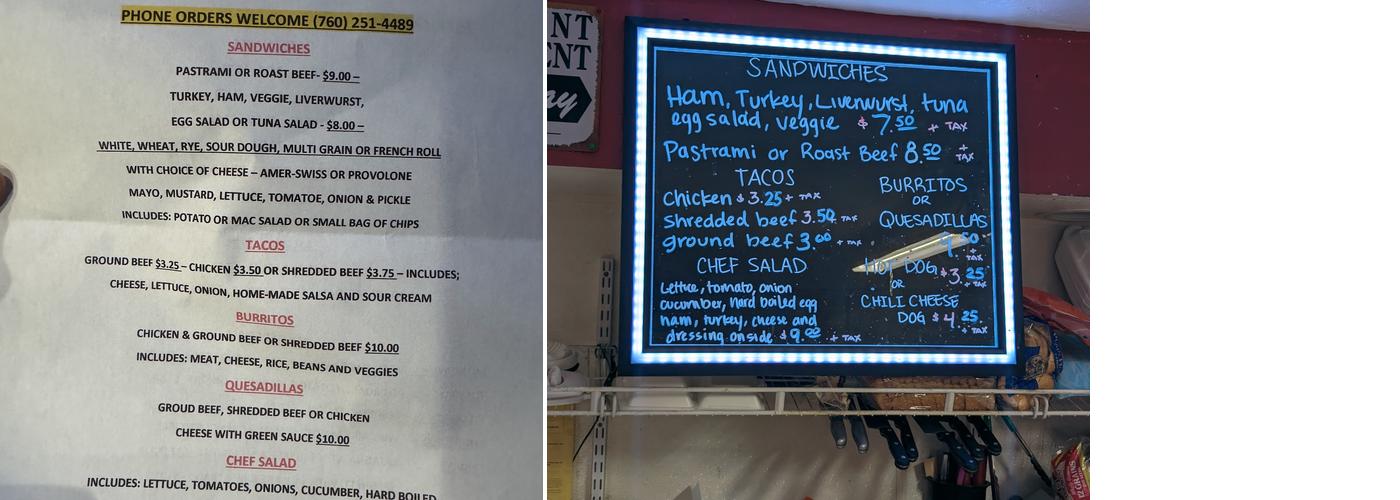 PHONE ORDERS WELCOME (760) 251-4489
SANDWICHES
PASTRAMI OR ROAST BEEF- $9.00 –
TURKEY, HAM, VEGGIE, LIVERWURST,
EGG SALAD OR TUNA SALAD - $8.00 –
WHITE, WHEAT, RYE, SOUR DOUGH, MULTI GRAIN OR FRENCH ROLL
WITH CHOICE OF CHEESE – AMER-SWISS OR PROVOLONE
MAYO, MUSTARD, LETTUCE, TOMATOE, ONION & PICKLE
INCLUDES: POTATO OR MAC SALAD OR SMALL BAG OF CHIPS
TACOS
GROUND BEEF $3.25 – CHICKEN $3.50 OR SHREDDED BEEF $3.75 – INCLUDES;
CHEESE, LETTUCE, ONION, HOME-MADE SALSA AND SOUR CREAM
BURRITOS
CHICKEN & GROUND BEEF OR SHREDDED BEEF $10.00
INCLUDES: MEAT, CHEESE, RICE, BEANS AND VEGGIES
QUESADILLAS
GROUD BEEF, SHREDDED BEEF OR CHICKEN
CHEESE WITH GREEN SAUCE $10.00
CHEF SALAD
INCLUDES: LETTUCE, TOMATOES, ONIONS, CUCUMBER, HARD BOILED
NT
ENT
ay
SANDWICHES
Ham, Turkey, Liverwurst, tuna
egg salad, veggie $7.50 + TAX
Pastrami or Roast Beef 8.50 + TAX
TACOS
Chicken $3.25 + TAX
shredded beef 3.50 + TAX
ground beef 3.00 + TAX
CHEF SALAD
Lettuce, tomato, onion
cucumber, hard boiled egg
ham, turkey, cheese and
dressing on side $9.00 + TAX
BURRITOS
OR
QUESADILLAS
.50
+ TAX
HOT DOG $3.25
+ TAX
OR
CHILI CHEESE
DOG $4.25
+ TAX